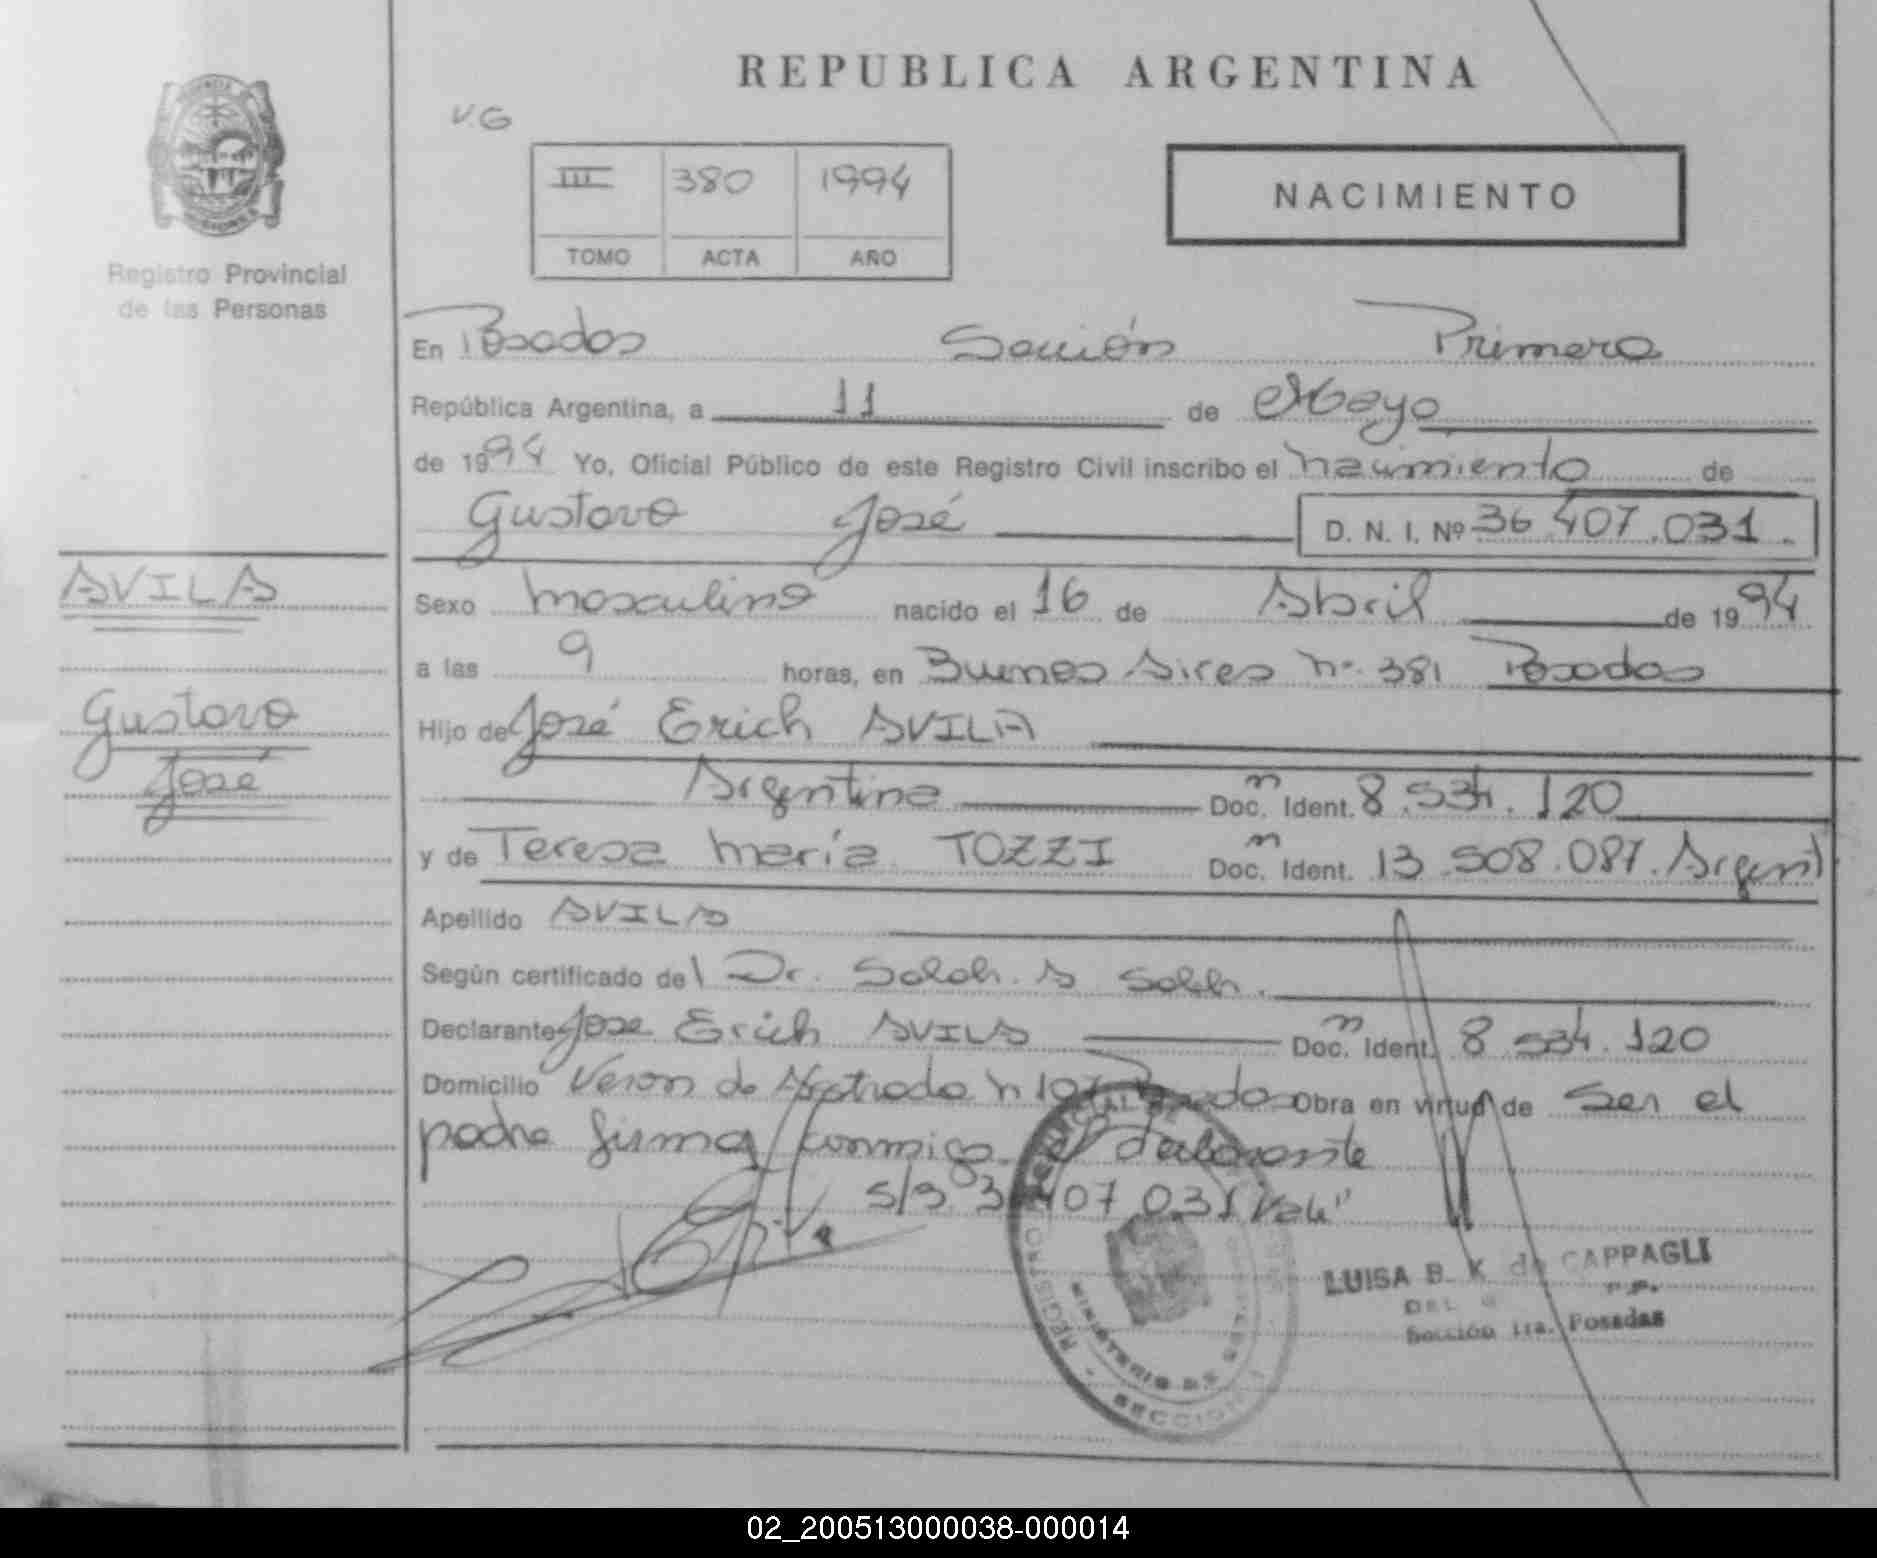 REPUBLICA ARGENTINA
V.G
III 380 1994
TOMO ACTA AÑO
NACIMIENTO
Registro Provincial
de las Personas
En Posadas Sección Primera
República Argentina, a 11 de Mayo
de 1994 Yo, Oficial Público de este Registro Civil inscribo el nacimiento de
Gustavo José D. N. I. Nº 36.407.031.
AVILA
Gustavo
José
Sexo masculino nacido el 16 de Abril de 1994
a las 9 horas, en Buenos Aires nº 381 Posadas
Hijo de José Erich AVILA
Argentino Doc. n Ident. 8.534.120
y de Teresa María TOZZI Doc. n Ident. 13.508.087. Argent
Apellido AVILA
Según certificado del Dr. Salah. A
Declarante Jose Erich AVILA Doc. n Ident. 8 534.120
Domicilio Veron de Astrada n Posadas Obra en virtud de Ser el
padre firma conmigo el declarante
S/B 36 407 031 Vale"
REGISTRO
MINISTERIO DE
SECCION 1
LUISA B. K. de CAPPAGLI
Sección 1ra. Posadas
02_200513000038-000014